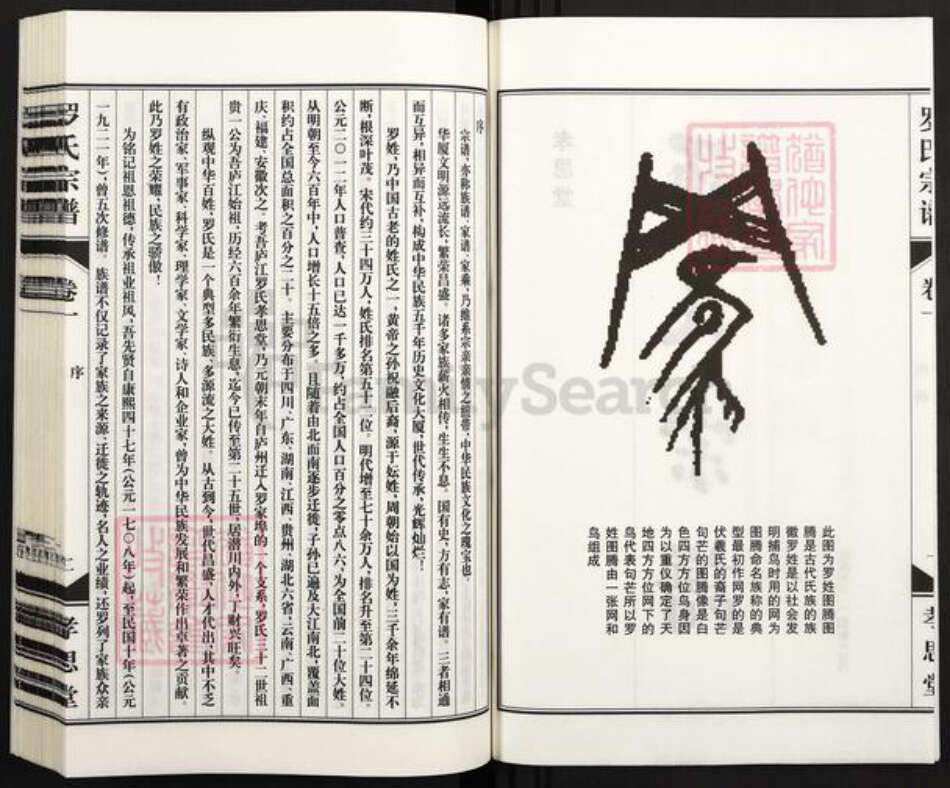 罗氏宗谱
卷一
孝思堂
此图为罗姓图腾图
腾是古代氏族的族
徽罗姓是以社会发
明捕鸟时用的网为
图腾命名族称的典
型最初作网罗的是
伏羲氏的裔子句芒
句芒的图腾像是白
色四方方位鸟身因
为以重仪确定了天
地四方方位网下的
鸟代表句芒所以罗
姓图腾由一张网和
鸟组成
FamilySearch
序
宗谱,亦称族谱、家谱、家乘,乃维系宗亲亲情之纽带,中华民族文化之瑰宝也。
华厦文明源远流长,繁荣昌盛。诸多家族薪火相传,生生不息。国有史,方有志,家有谱。三者相通
而互异,相异而互补,构成中华民族五千年历史文化大厦,世代传承,光辉灿烂!
罗姓,乃中国古老的姓氏之一,黄帝之孙祝融后裔,源于妘姓,周朝始以国为姓,三千余年绵延不
断,根深叶茂。宋代约三十四万人,姓氏排名第五十二位。明代增至七十余万人,排名升至第二十四位。
公元二〇一二年人口普查,人口已达一千多万,约占全国人口百分之零点八六,为全国前二十位大姓。
从明朝至今六百年中,人口增长十五倍之多。且随着由北而南逐步迁徙,子孙已遍及大江南北,覆盖面
积约占全国总面积之百分之二十。主要分布于四川、广东、湖南、江西、贵州、湖北六省;云南、广西、重
庆、福建、安徽次之。考吾庐江罗氏孝思堂,乃元朝末年自庐州迁入罗家埠的一个支系,罗氏三十二世祖
贵一公为吾庐江始祖,历经六百余年繁衍生息,迄今已传至第二十五世,居潜川内外,丁财兴旺矣。
纵观中华百姓,罗氏是一个典型多民族、多源流之大姓。从古到今,世代昌盛,人才代出,其中不乏
有政治家、军事家、科学家、理学家、文学家、诗人和企业家,曾为中华民族发展和繁荣作出卓著之贡献。
此乃罗姓之荣耀,民族之骄傲!
为铭记祖恩祖德,传承祖业祖风,吾先贤自康熙四十七年(公元一七〇八年)起,至民国十年(公元
一九二一年),曾五次修谱。族谱不仅记录了家族之来源、迁徙之轨迹,名人之业绩,还罗列了家族众亲
罗氏宗谱
卷一
序
二
孝思堂